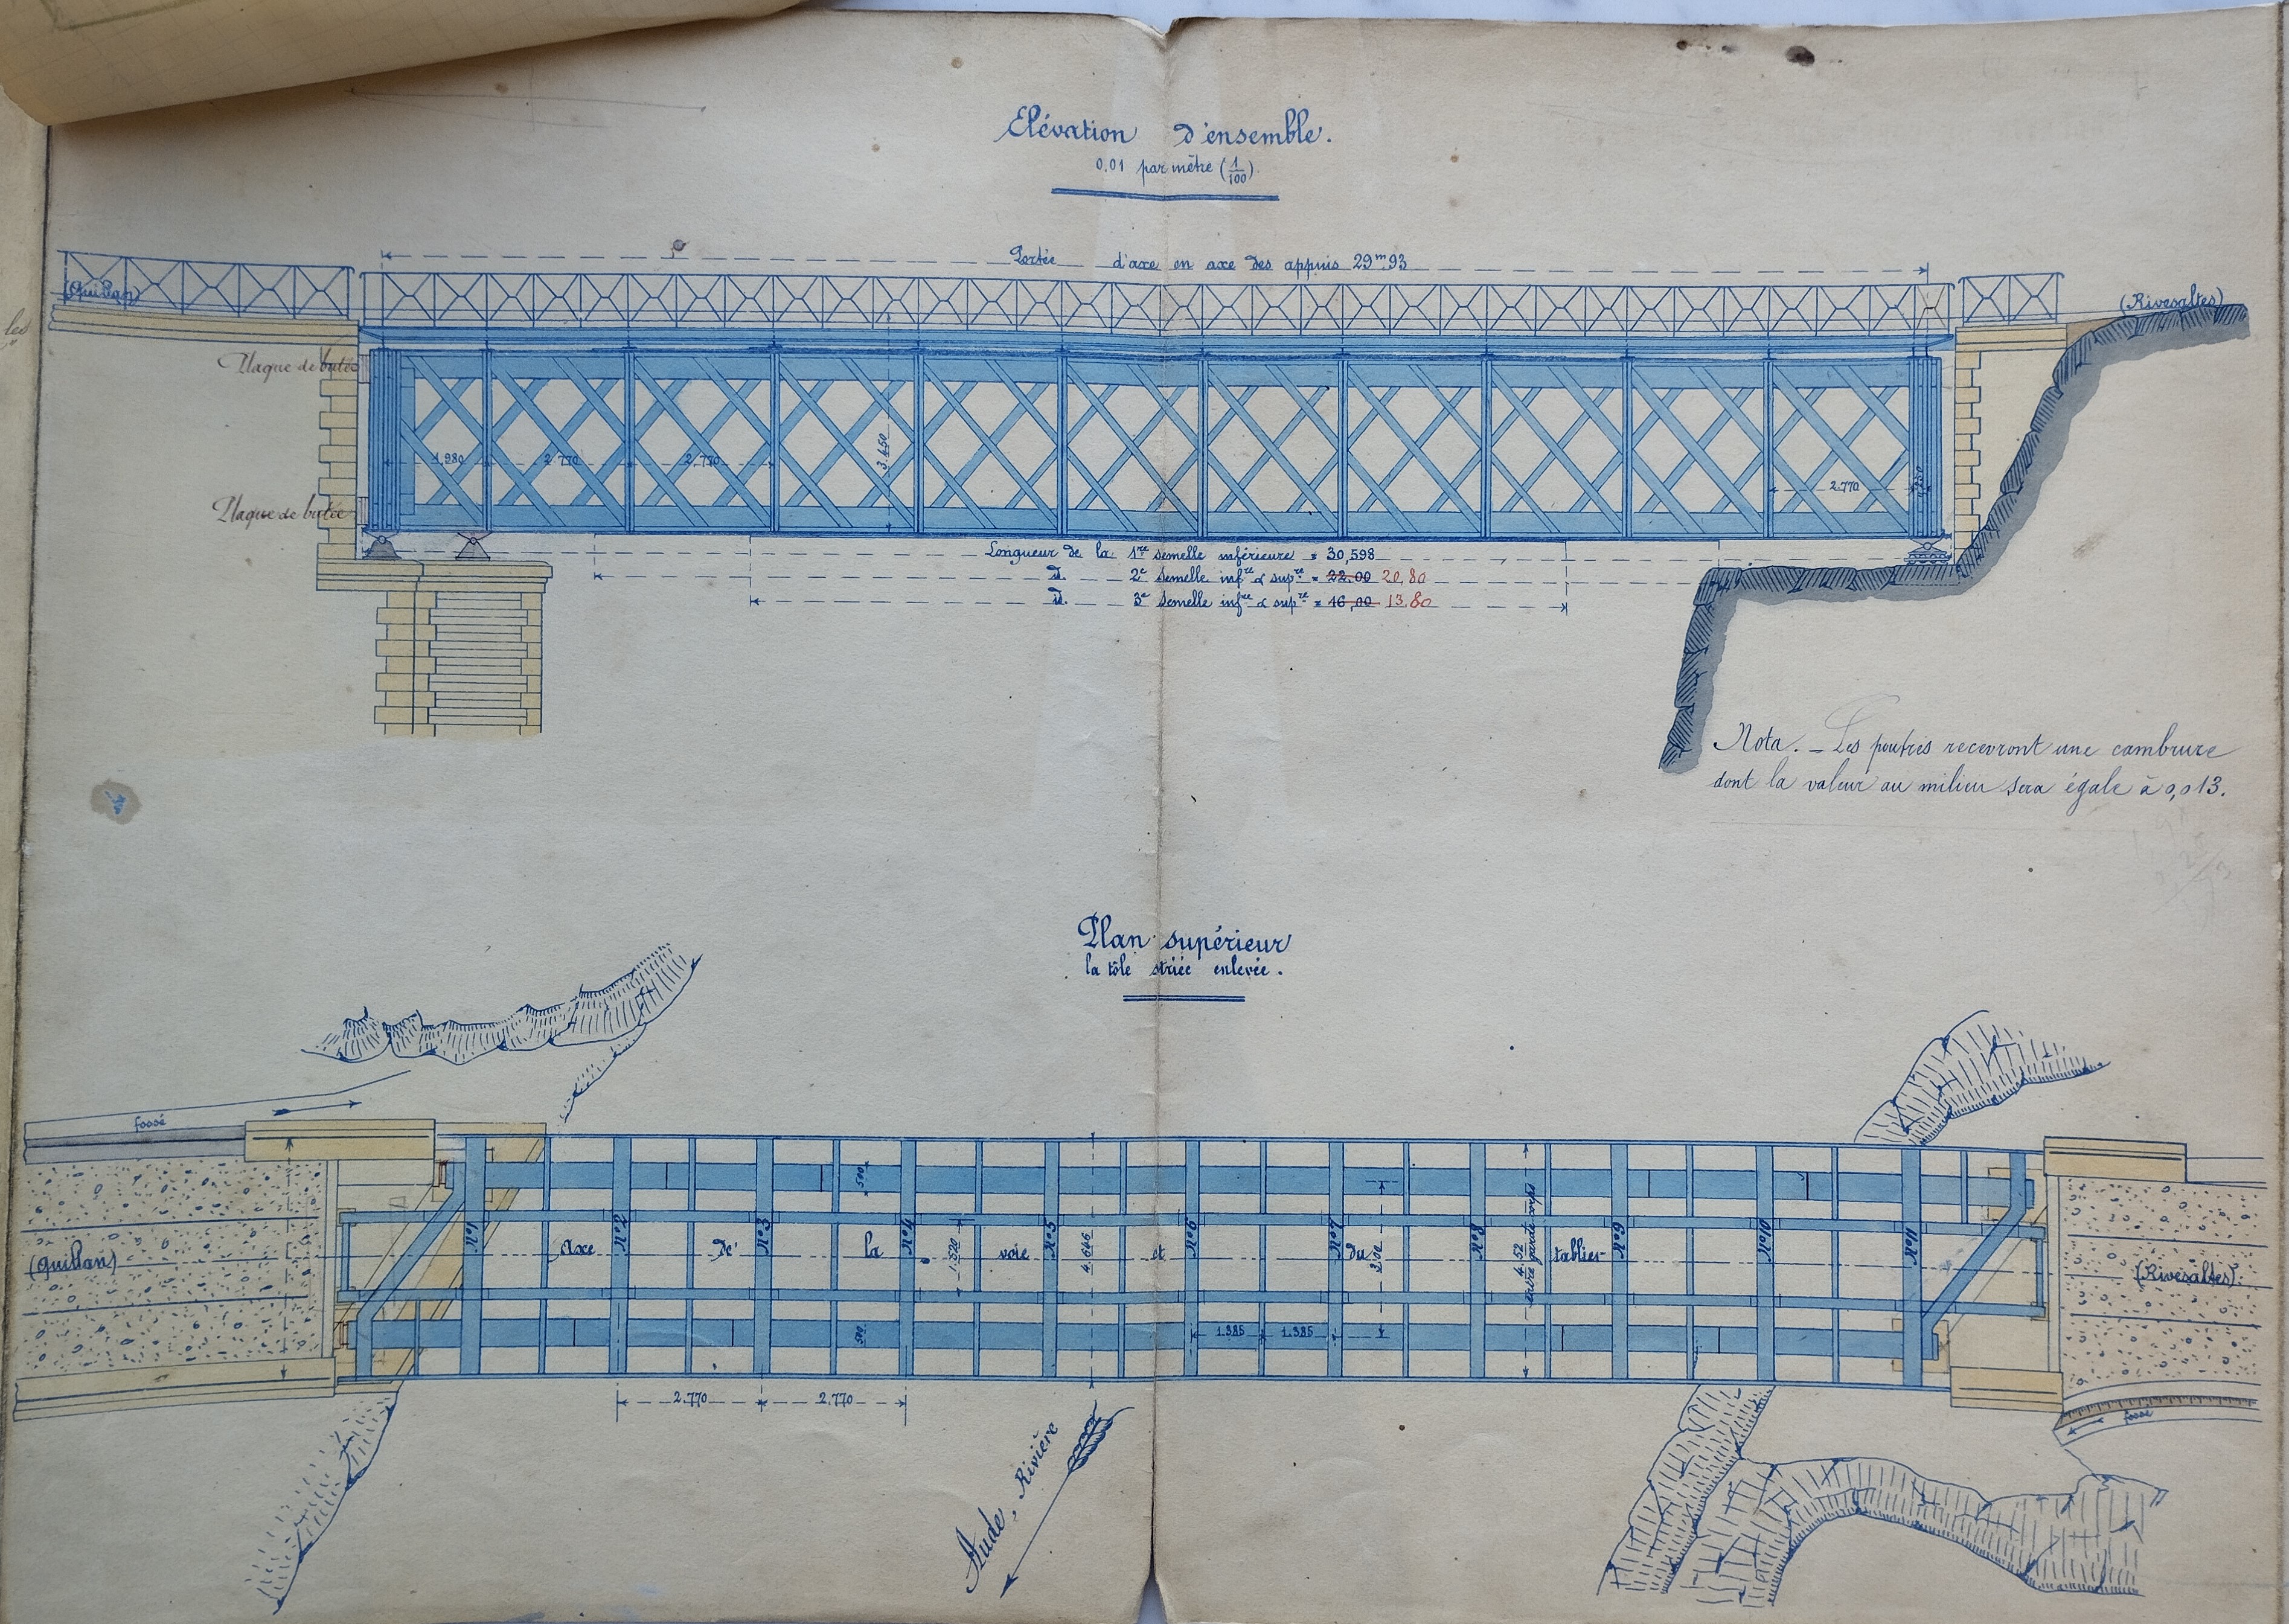 Elévation d'ensemble.
0,01 par mètre (1/100).
Portée d'axe en axe des appuis 29m93
(Quillan)
(Rivesaltes)
les
Plaque de butée
Plaque de butée
1,980
2.770
2,770
3.450
2.770
Longueur de la 1re semelle inférieure = 30,598
id. 2e semelle infre & supre = 22,00 20,80
id. 3e semelle infre & supre = 16,00 13,80
Nota. _ Les poutres recevront une cambrure
dont la valeur au milieu sera égale à 0,013.
Plan supérieur
la tôle striée enlevée.
fossé
(Quillan)
Axe de la voie et du tablier
(Rivesaltes)
No1
No2
No3
No4
No5
No6
No7
No8
No9
No10
No11
500
500
1.520
4.646
2.100
4.52
entre garde-corps
1.385
1.385
2.770
2.770
fossé
Aude, Rivière